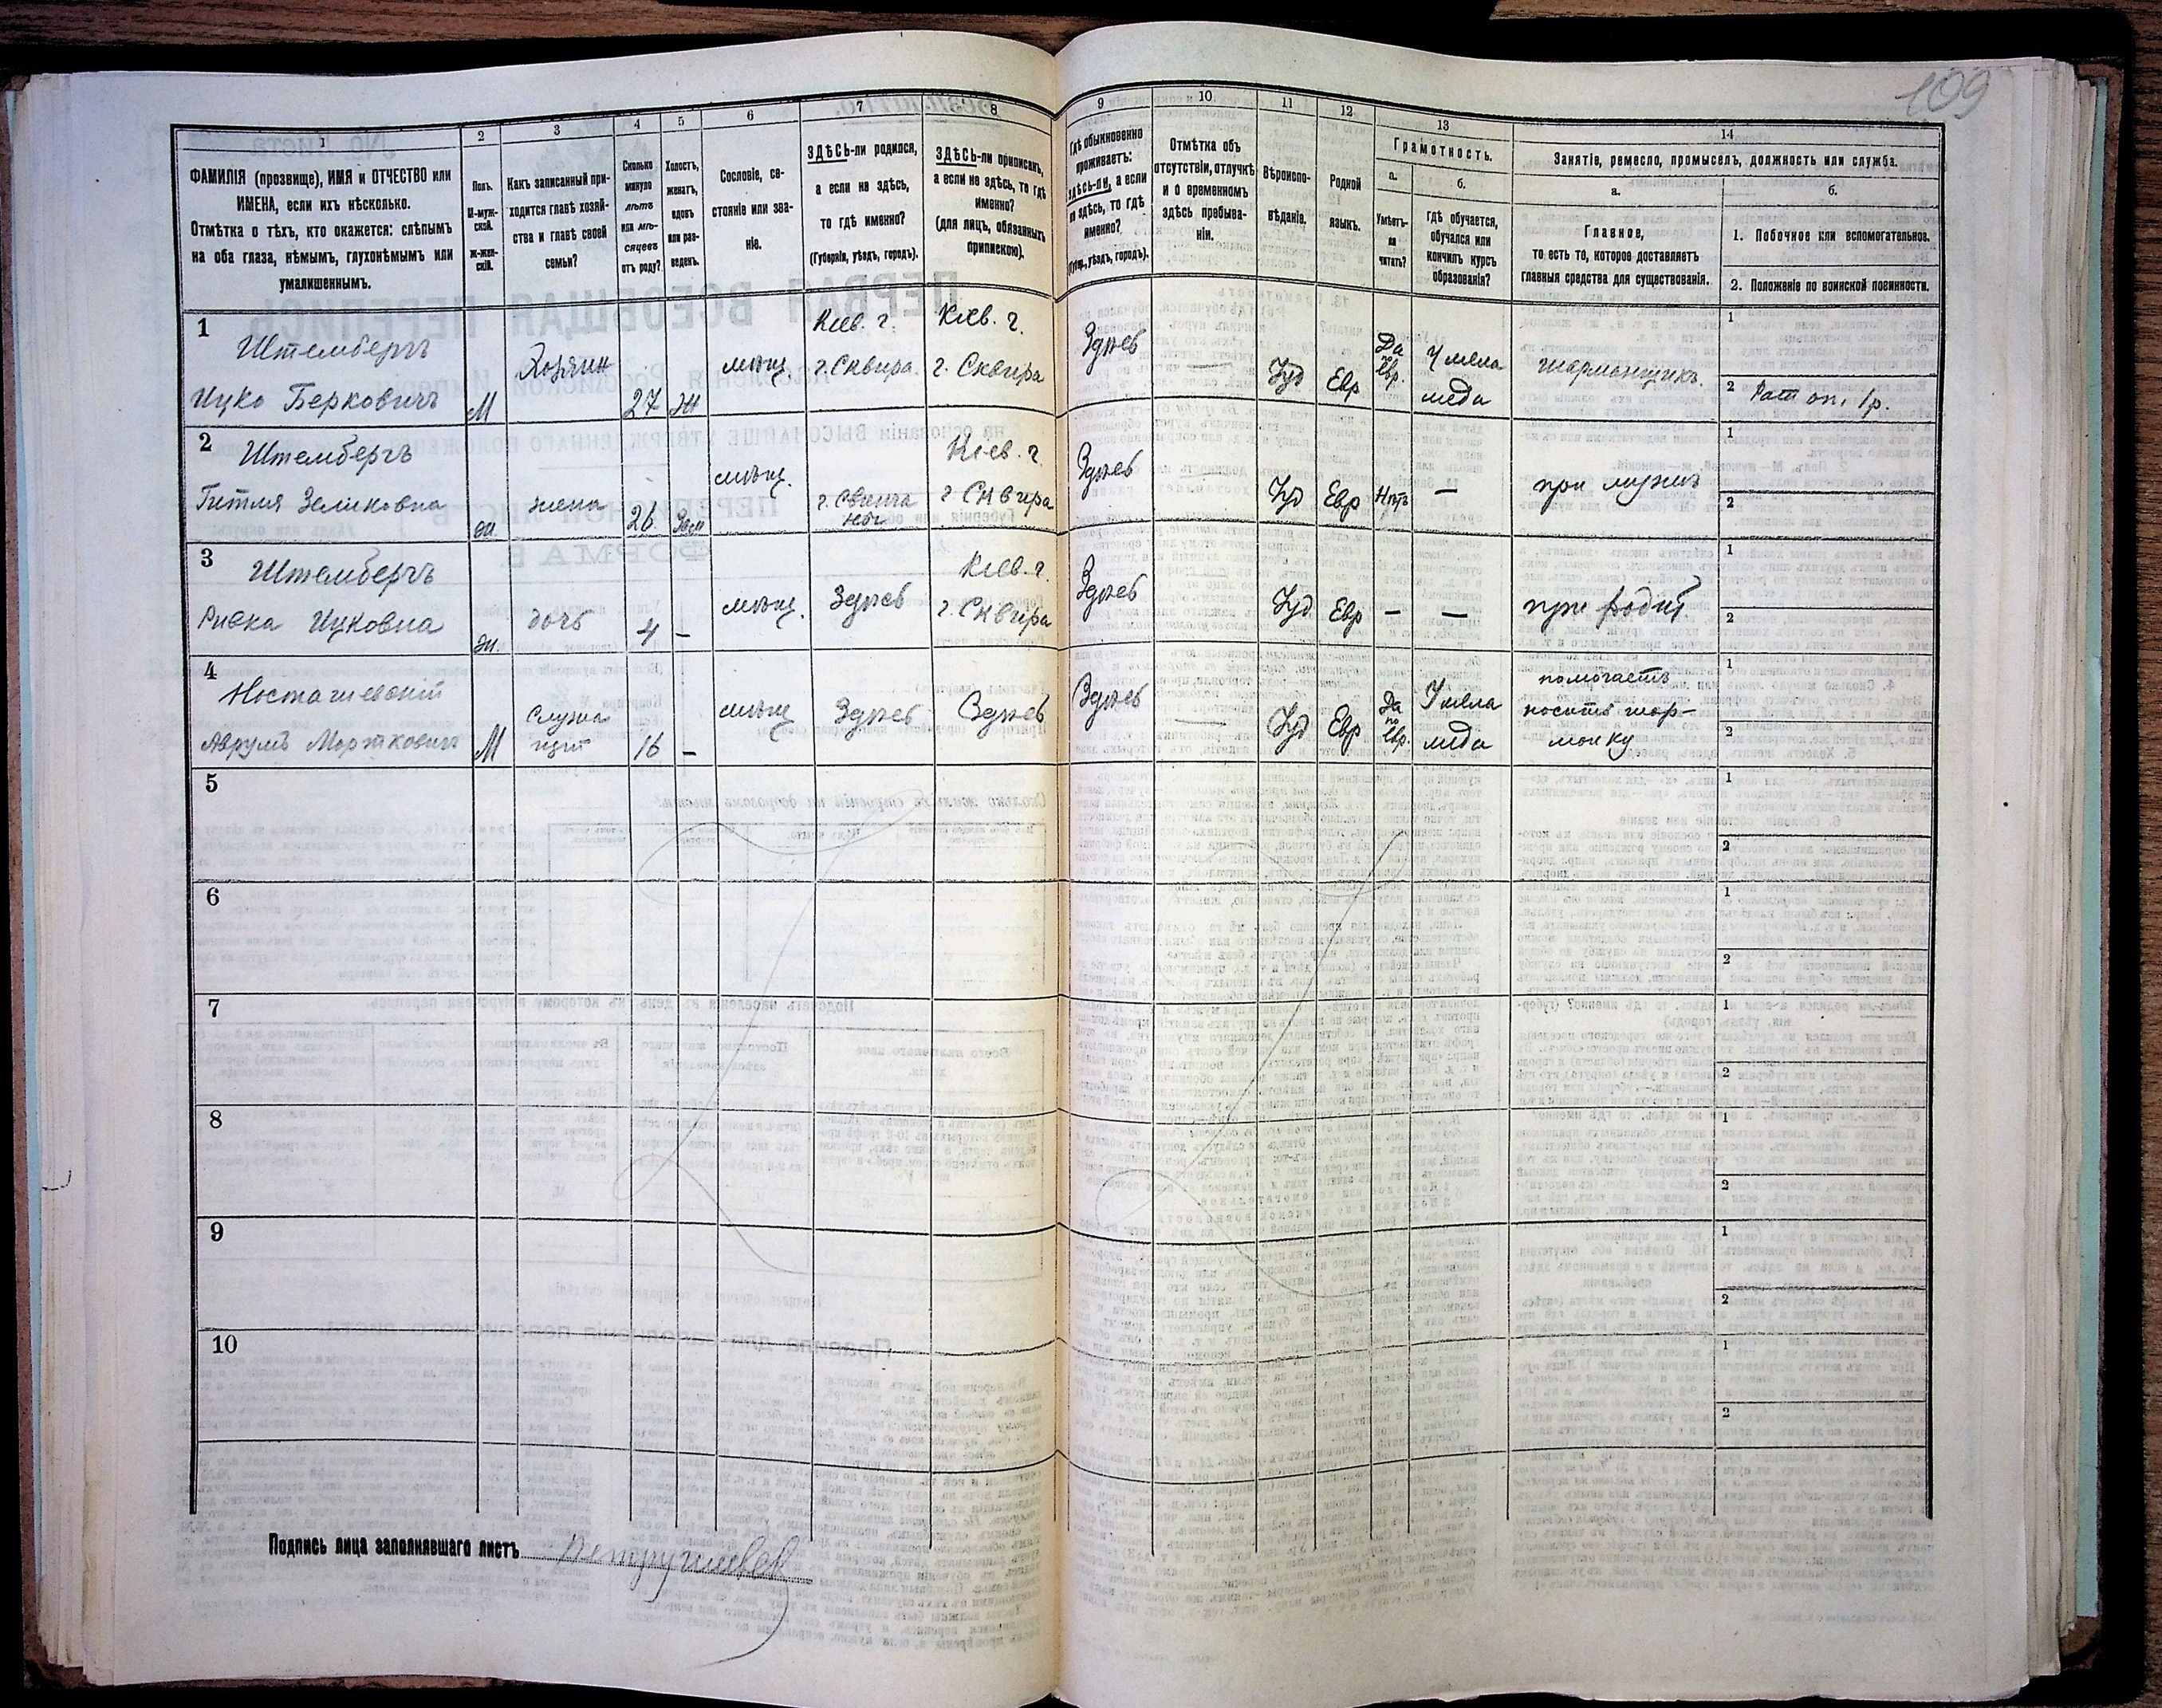 109
1
2
3
4
5
6
7
8
9
10
11
12
13
14
ФАМИЛІЯ (прозвище), ИМЯ и ОТЧЕСТВО или
ИМЕНА, если ихъ нѣсколько.
Отмѣтка о тѣхъ, кто окажется: слѣпымъ
на оба глаза, нѣмымъ, глухонѣмымъ или
умалишеннымъ.
Полъ.
М-муж-
ской.
Ж-жен-
скій.
Какъ записанный при-
ходится главѣ хозяй-
ства и главѣ своей
семьи?
Сколько
минуло
лѣтъ
или мѣ-
сяцевъ
отъ роду?
Холостъ,
женатъ,
вдовъ
или раз-
веденъ.
Сословіе, со-
стояніе или зва-
ніе.
ЗДѢСЬ-ли родился,
а если не здѣсь,
то гдѣ именно?
(Губернія, уѣздъ, городъ).
ЗДѢСЬ-ли приписанъ,
а если не здѣсь, то гдѣ
именно?
(для лицъ, обязанныхъ
припискою).
Гдѣ обыкновенно
проживаетъ:
ЗДѢСЬ-ли, а если
не здѣсь, то гдѣ
именно?
(Губерн., уѣздъ, городъ).
Отмѣтка объ
отсутствіи, отлучкѣ
и о временномъ
здѣсь пребыва-
ніи.
Вѣроиспо-
вѣданіе.
Родной
языкъ.
Грамотность.
а.
Умѣетъ-
ли
читать?
б.
гдѣ обучается,
обучался или
кончилъ курсъ
образованія?
Занятіе, ремесло, промыселъ, должность или служба.
а.
Главное,
то есть то, которое доставляетъ
главныя средства для существованія.
б.
1. Побочное или вспомогательное.
2. Положеніе по воинской повинности.
1
Штембергъ
Ицко Берковичъ
М
Хозяин
27
Ж
мѣщ.
Кіев. г.
г. Сквира.
Кіев. г.
г. Сквира
Здѣсь
—
Іуд
Евр
Да
по
Евр.
У мела
меда
шарманщикъ.
1
2
2
Штембергъ
Гитля Зеликовна
ж.
жена
26
Зам
мѣщ.
Кіев. г.
г. Сквира
Здѣсь
—
Іуд
Евр
Нѣтъ
—
при мужѣ
1
2
3
Штембергъ
Ривка Ицковна
ж.
дочь
4
—
мѣщ.
Здѣсь
Кіев. г.
г. Сквира
Здѣсь
Іуд
Евр
—
—
при родит.
1
2
4
Аврумъ Мортковичъ
М
16
—
мѣщ
Здѣсь
Здѣсь
Здѣсь
—
Іуд
Евр
Да
по
Евр.
У мела
меда
помогаетъ
носить шар-
манку
1
2
5
1
2
6
1
2
7
1
2
8
1
2
9
1
2
10
1
2
Подпись лица заполнявшаго листъ